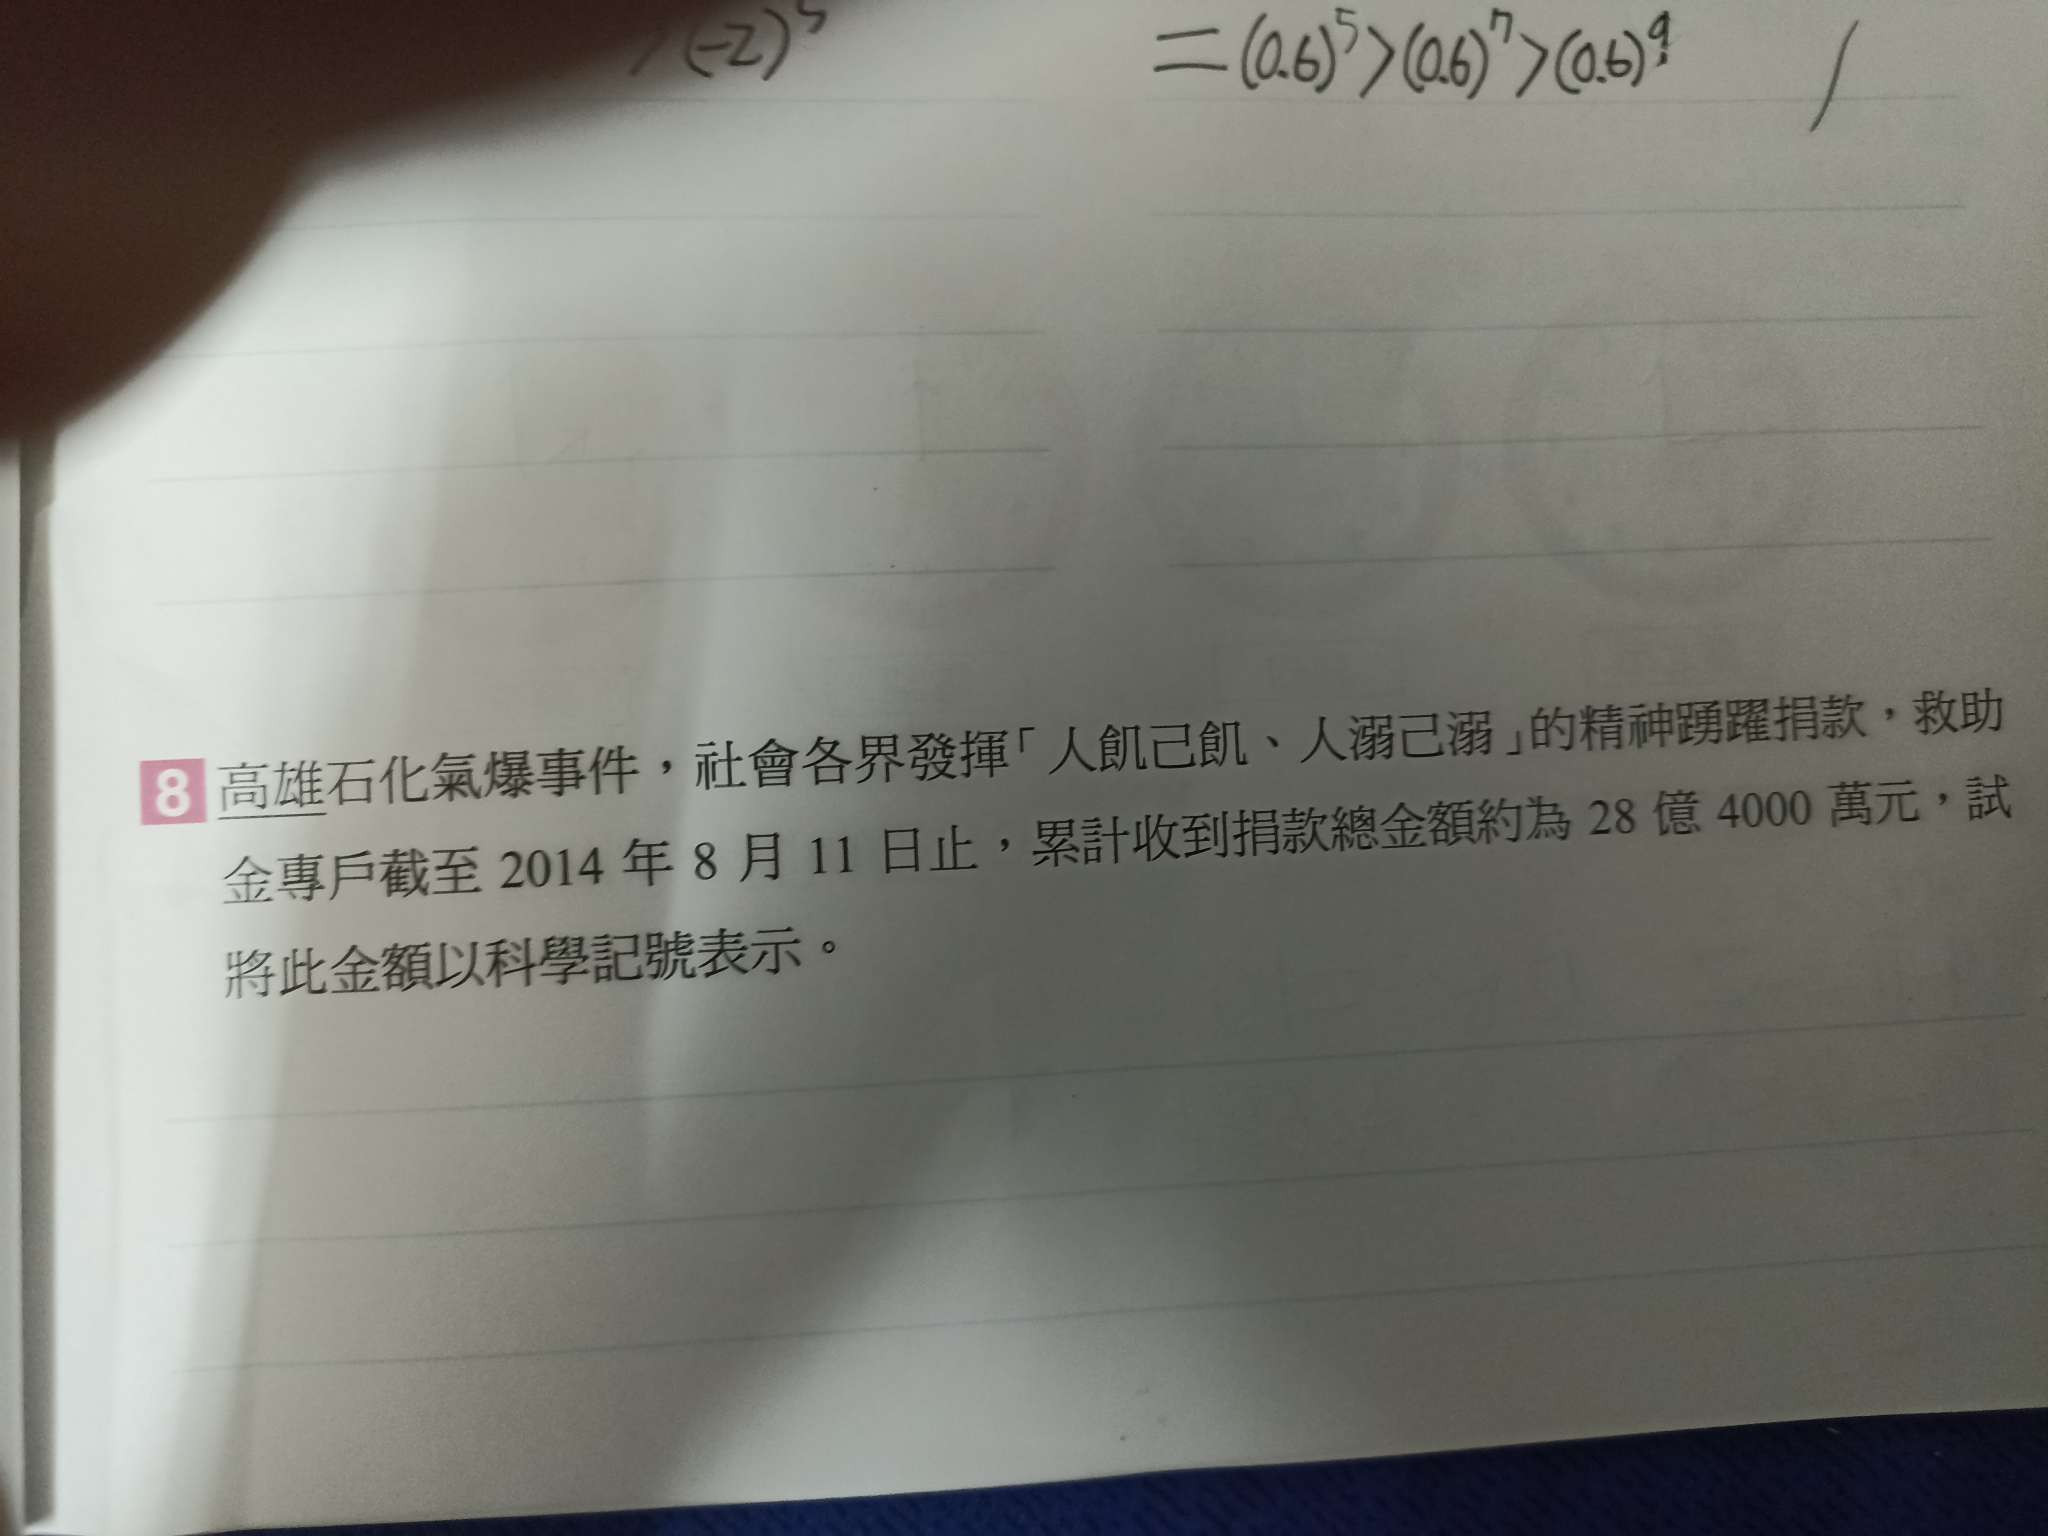 > (-2)⁵
= (0.6)⁵ > (0.6)⁷ > (0.6)⁹
8 高雄石化氣爆事件，社會各界發揮「人飢己飢、人溺己溺」的精神踴躍捐款，救助
金專戶截至 2014 年 8 月 11 日止，累計收到捐款總金額約為 28 億 4000 萬元，試
將此金額以科學記號表示。